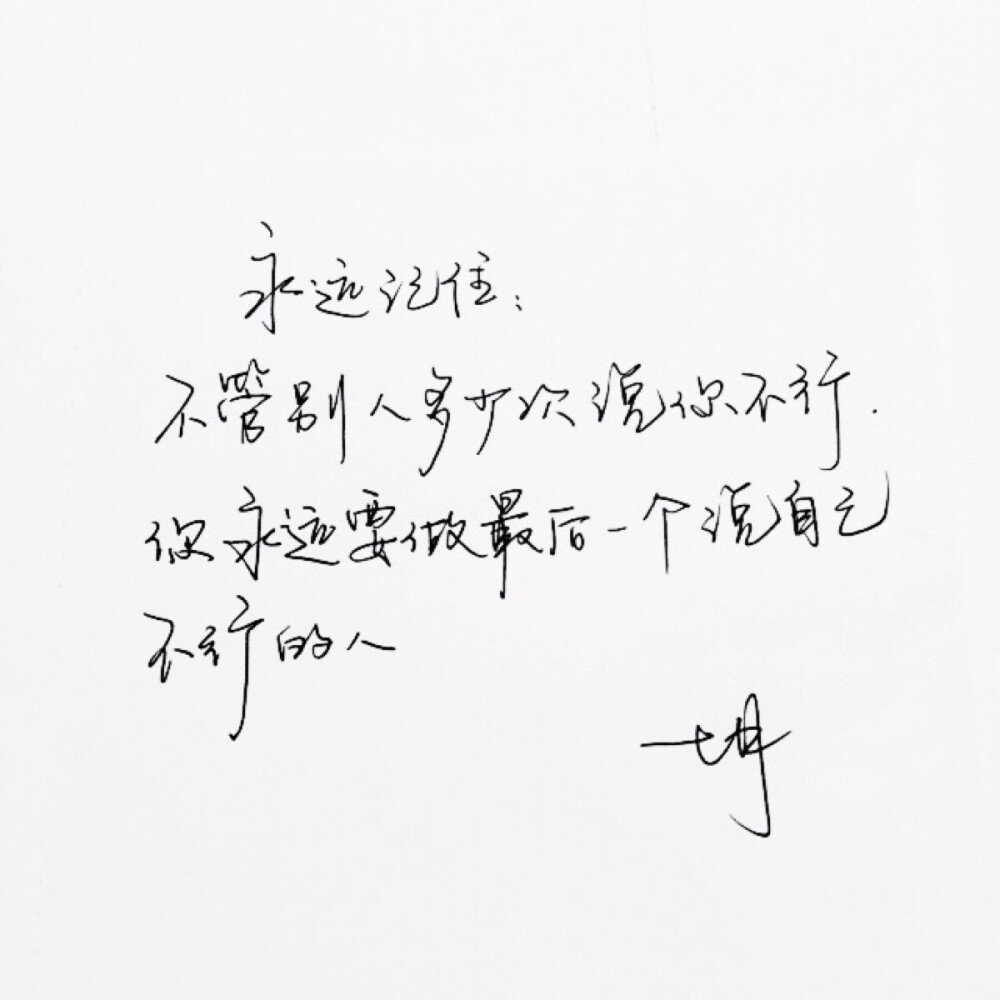 永远记住：
不管别人多少次说你不行.
你永远要做最后一个说自己
不行的人
一坤